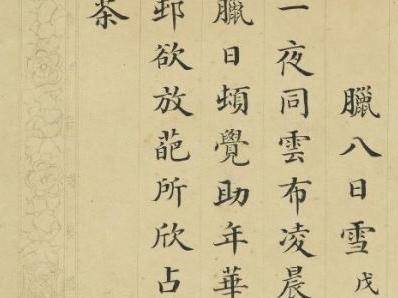 臘八日雪戊
一夜同雲布凌晨
臘日頓覺助年華
邨欲放葩所欣占
荼